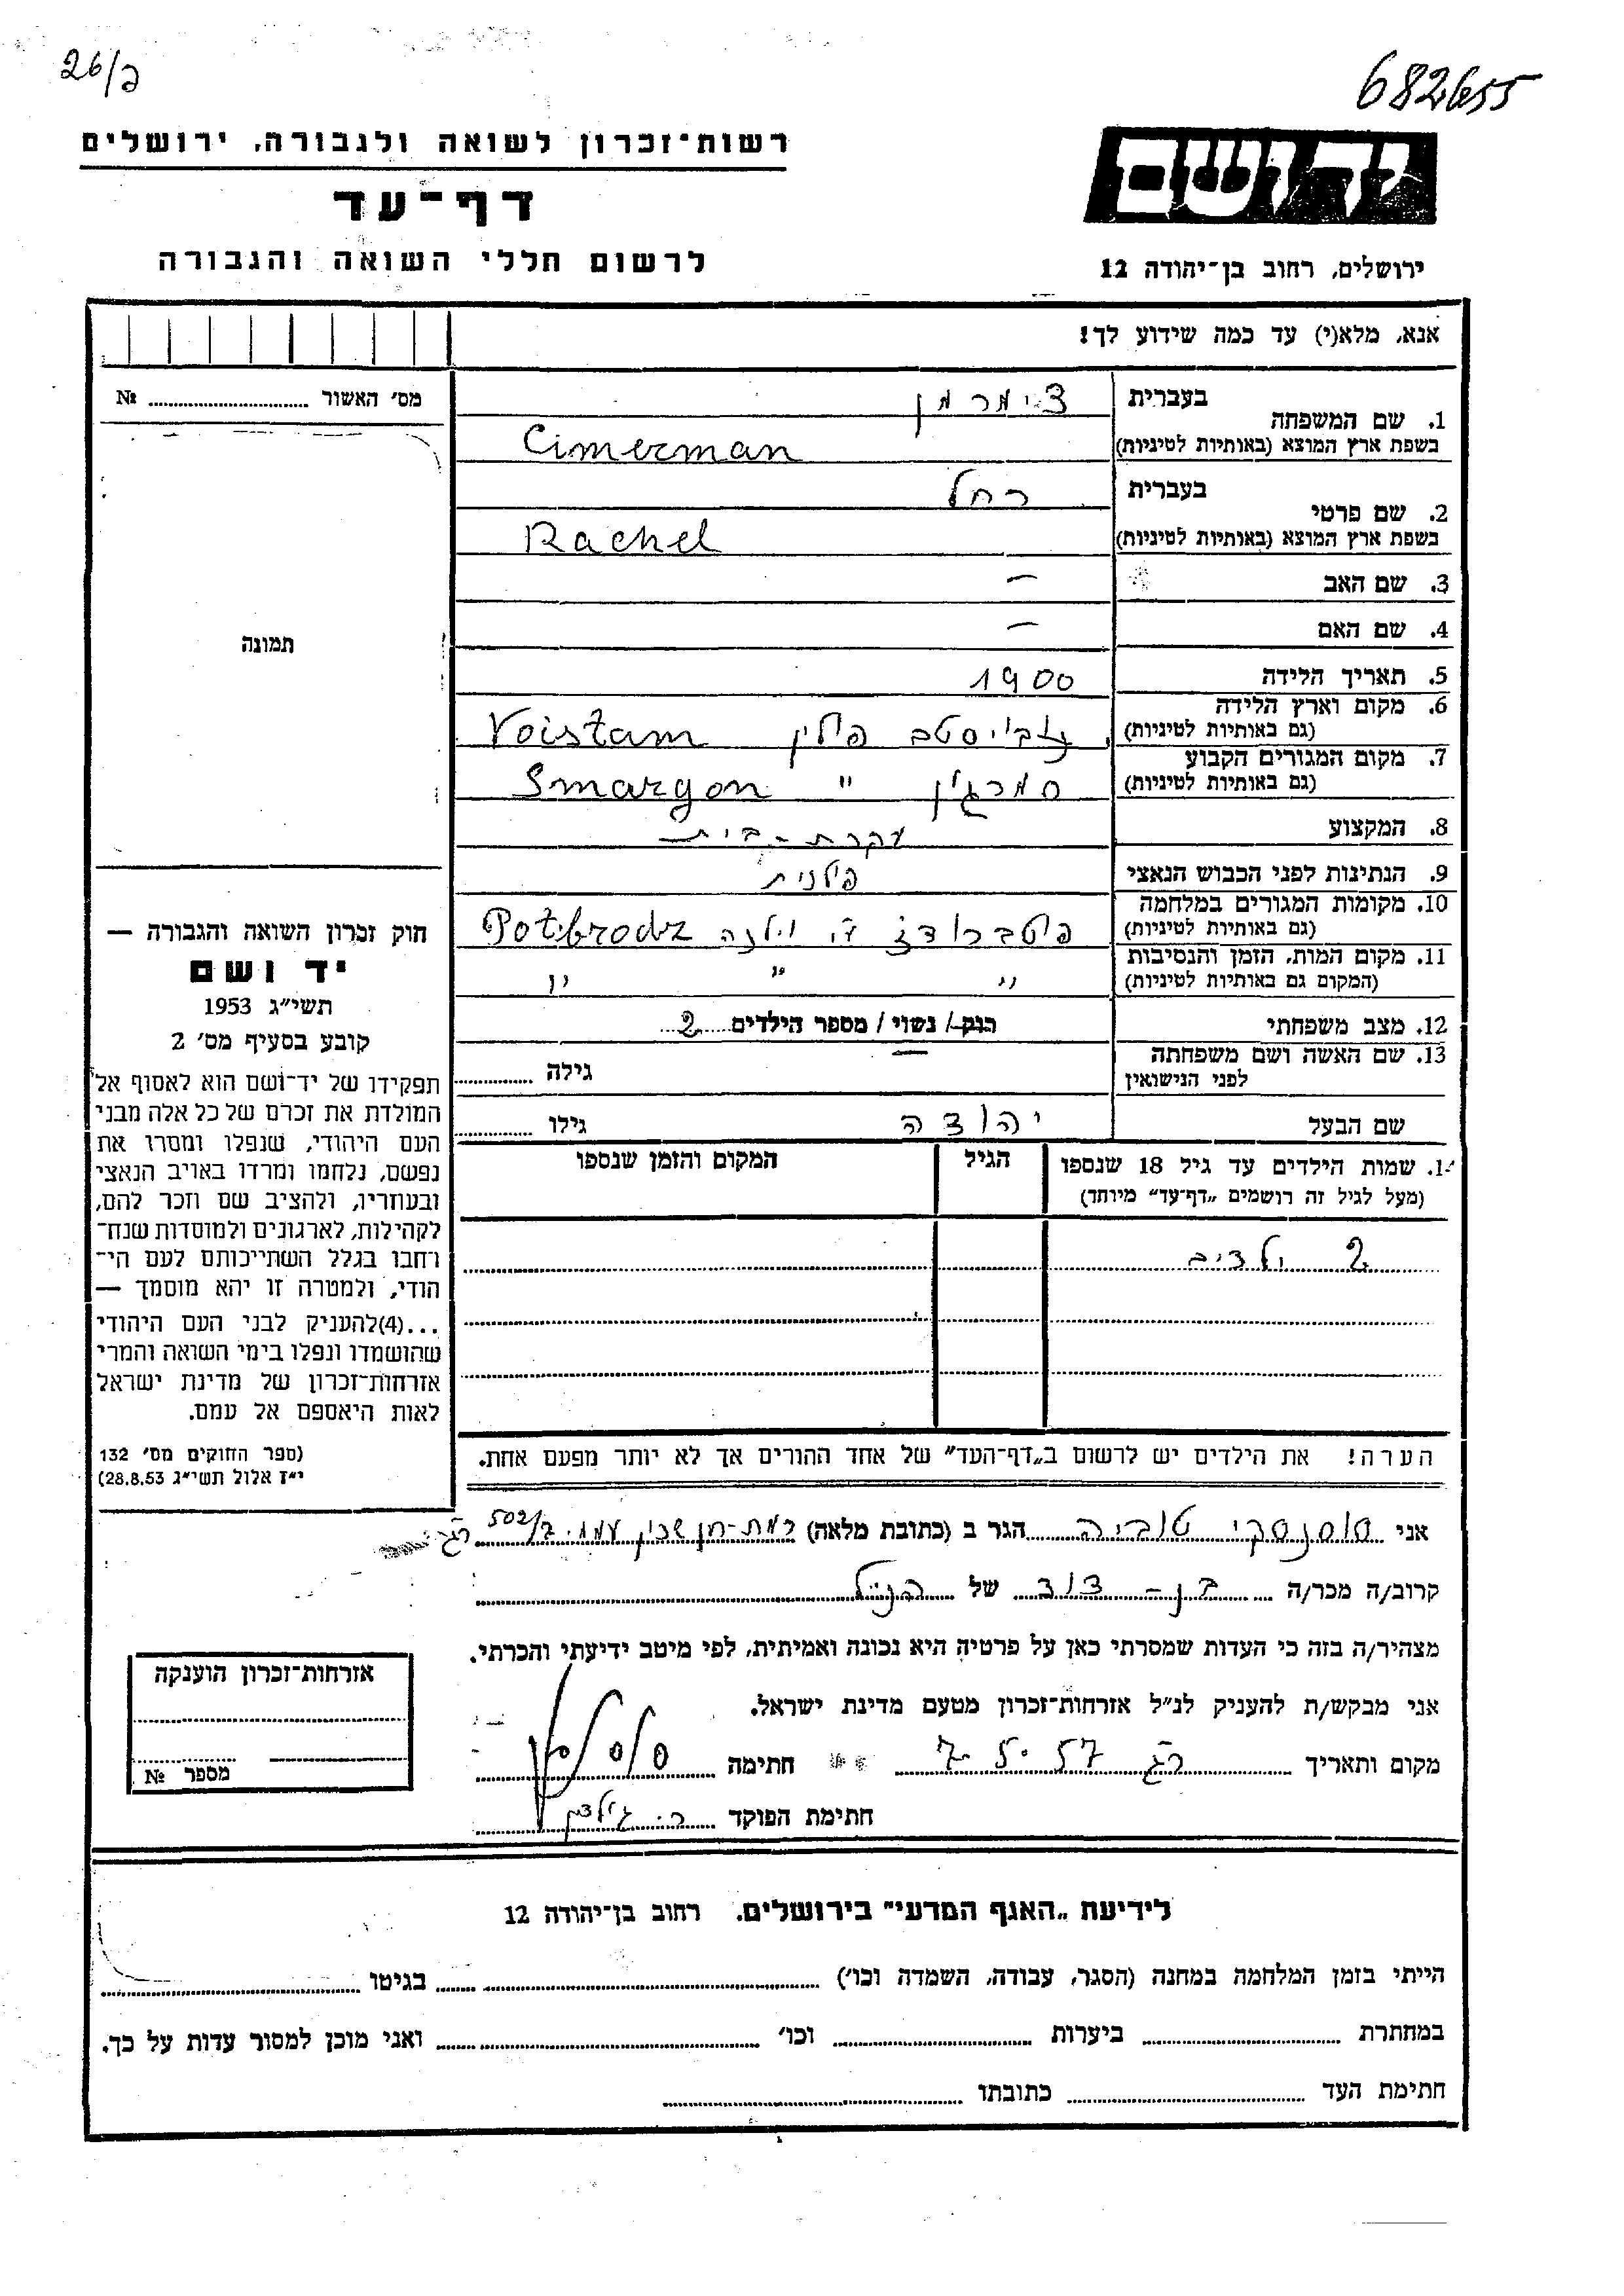 26/ב
682655
רשות־זכרון לשואה ולגבורה, ירושלים
דף־עד
לרשום חללי השואה והגבורה
יד ושם
ירושלים, רחוב בן־יהודה 12
אנא, מלא(י) עד כמה שידוע לך!
מס׳ האשור № ........
תמונה
1. שם המשפחה
בעברית צימרמן
בשפת ארץ המוצא (באותיות לטיניות) Cimerman
2. שם פרטי
בעברית רחל
בשפת ארץ המוצא (באותיות לטיניות) Rachel
3. שם האב —
4. שם האם —
5. תאריך הלידה 1900
6. מקום וארץ הלידה
(גם באותיות לטיניות) פולין Voistam
7. מקום המגורים הקבוע
(גם באותיות לטיניות) סמרגון " Smargon
8. המקצוע עקרת-בית
9. הנתינות לפני הכבוש הנאצי פולנית
10. מקומות המגורים במלחמה
(גם באותיות לטיניות) פוטברודז וילנה Potzbrodz
11. מקום המות, הזמן והנסיבות
(המקום גם באותיות לטיניות) " " "
12. מצב משפחתי רוק / נשוי / מספר הילדים 2
13. שם האשה ושם משפחתה —
לפני הנישואין גילה ........
שם הבעל יהודה גילו ........
14. שמות הילדים עד גיל 18 שנספו הגיל המקום והזמן שנספו
(מעל לגיל זה רושמים „דף־עד״ מיוחד)
2 ילדים
הערה! את הילדים יש לרשום ב„דף־העד״ של אחד ההורים אך לא יותר מפעם אחת.
חוק זכרון השואה והגבורה —
יד ושם
תשי״ג 1953
קובע בסעיף מס׳ 2
תפקידו של יד־ושם הוא לאסוף אל
המולדת את זכרם של כל אלה מבני
העם היהודי, שנפלו ומסרו את
נפשם, נלחמו ומרדו באויב הנאצי
ובעוזריו, ולהציב שם וזכר להם,
לקהילות, לארגונים ולמוסדות שנח־
רחבו בגלל השתייכותם לעם הי־
הודי, ולמטרה זו יהא מוסמך —
...(4)להעניק לבני העם היהודי
שהושמדו ונפלו בימי השואה והמרי
אזרחות־זכרון של מדינת ישראל
לאות היאספם אל עמם.
(ספר החוקים מס׳ 132
י״ז אלול תשי״ג 28.8.53)
אני סוסנסקי טוביה הגר ב (כתובת מלאה) רמת-חן שכון עממי ב/502 רג
קרוב/ה מכר/ה בן-דוד של הנ״ל
מצהיר/ה בזה כי העדות שמסרתי כאן על פרטיה היא נכונה ואמיתית, לפי מיטב ידיעתי והכרתי.
אני מבקש/ת להעניק לנ״ל אזרחות־זכרון מטעם מדינת ישראל.
מקום ותאריך רג 7.5.57 חתימה
חתימת הפוקד
אזרחות־זכרון הוענקה
מספר №
לידיעת „האגף המדעי״ בירושלים, רחוב בן־יהודה 12
הייתי בזמן המלחמה במחנה (הסגר, עבודה, השמדה וכו׳) ........ בגיטו ........
במחתרת ........ ביערות ........ וכו׳ ........ ואני מוכן למסור עדות על כך.
חתימת העד ........ כתובתו ........